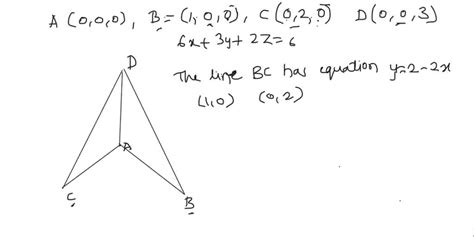 A (0,0,0), B = (1,0,0), C (0,2,0) D (0,0,3)
6x + 3y + 2z = 6
The line BC has equation y = 2 - 2x
(1,0) (0,2)
D
A
C
B